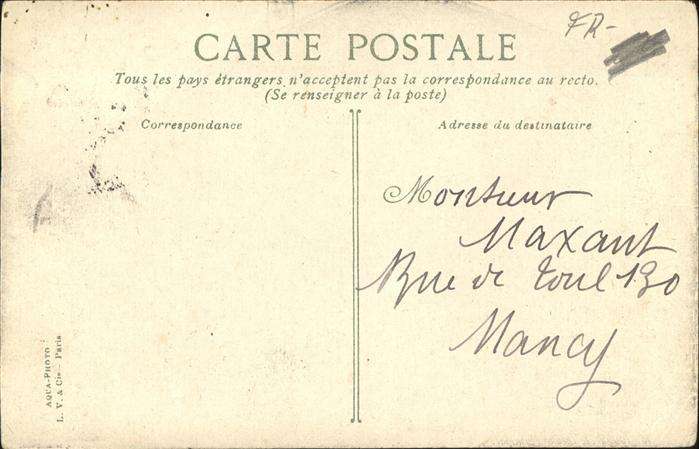 FR-
CARTE POSTALE
Tous les pays étrangers n'acceptent pas la correspondance au recto.
(Se renseigner à la poste)
Correspondance
Adresse du destinataire
Monsieur
Maxant
Rue de Toul 130
Nancy
AQUA-PHOTO :
L. V. & Cie — Paris